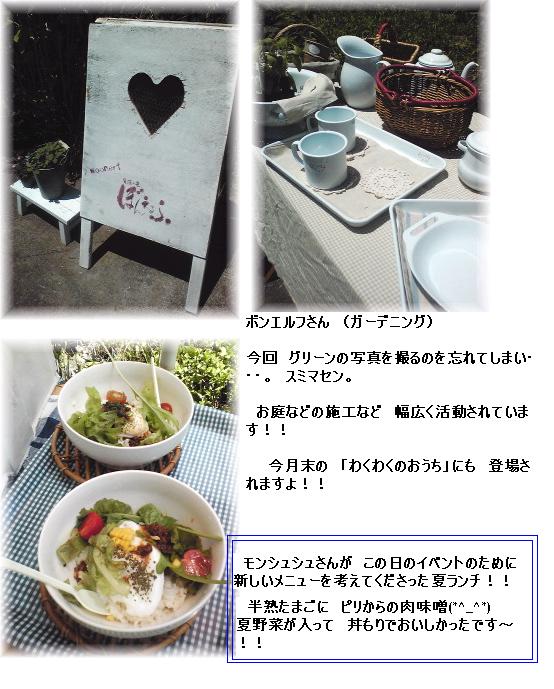 ぼんえるふ
ボンエルフさん （ガーデニング）
今回 グリーンの写真を撮るのを忘れてしまい・
・・。 スミマセン。
お庭などの施工など 幅広く活動されていま
す！！
今月末の 「わくわくのおうち」にも 登場さ
れますよ！！
モンシュシュさんが この日のイベントのために
新しいメニューを考えてくださった夏ランチ！！
半熟たまごに ピリからの肉味噌(*^_^*)
夏野菜が入って 丼もりでおいしかったです～
！！